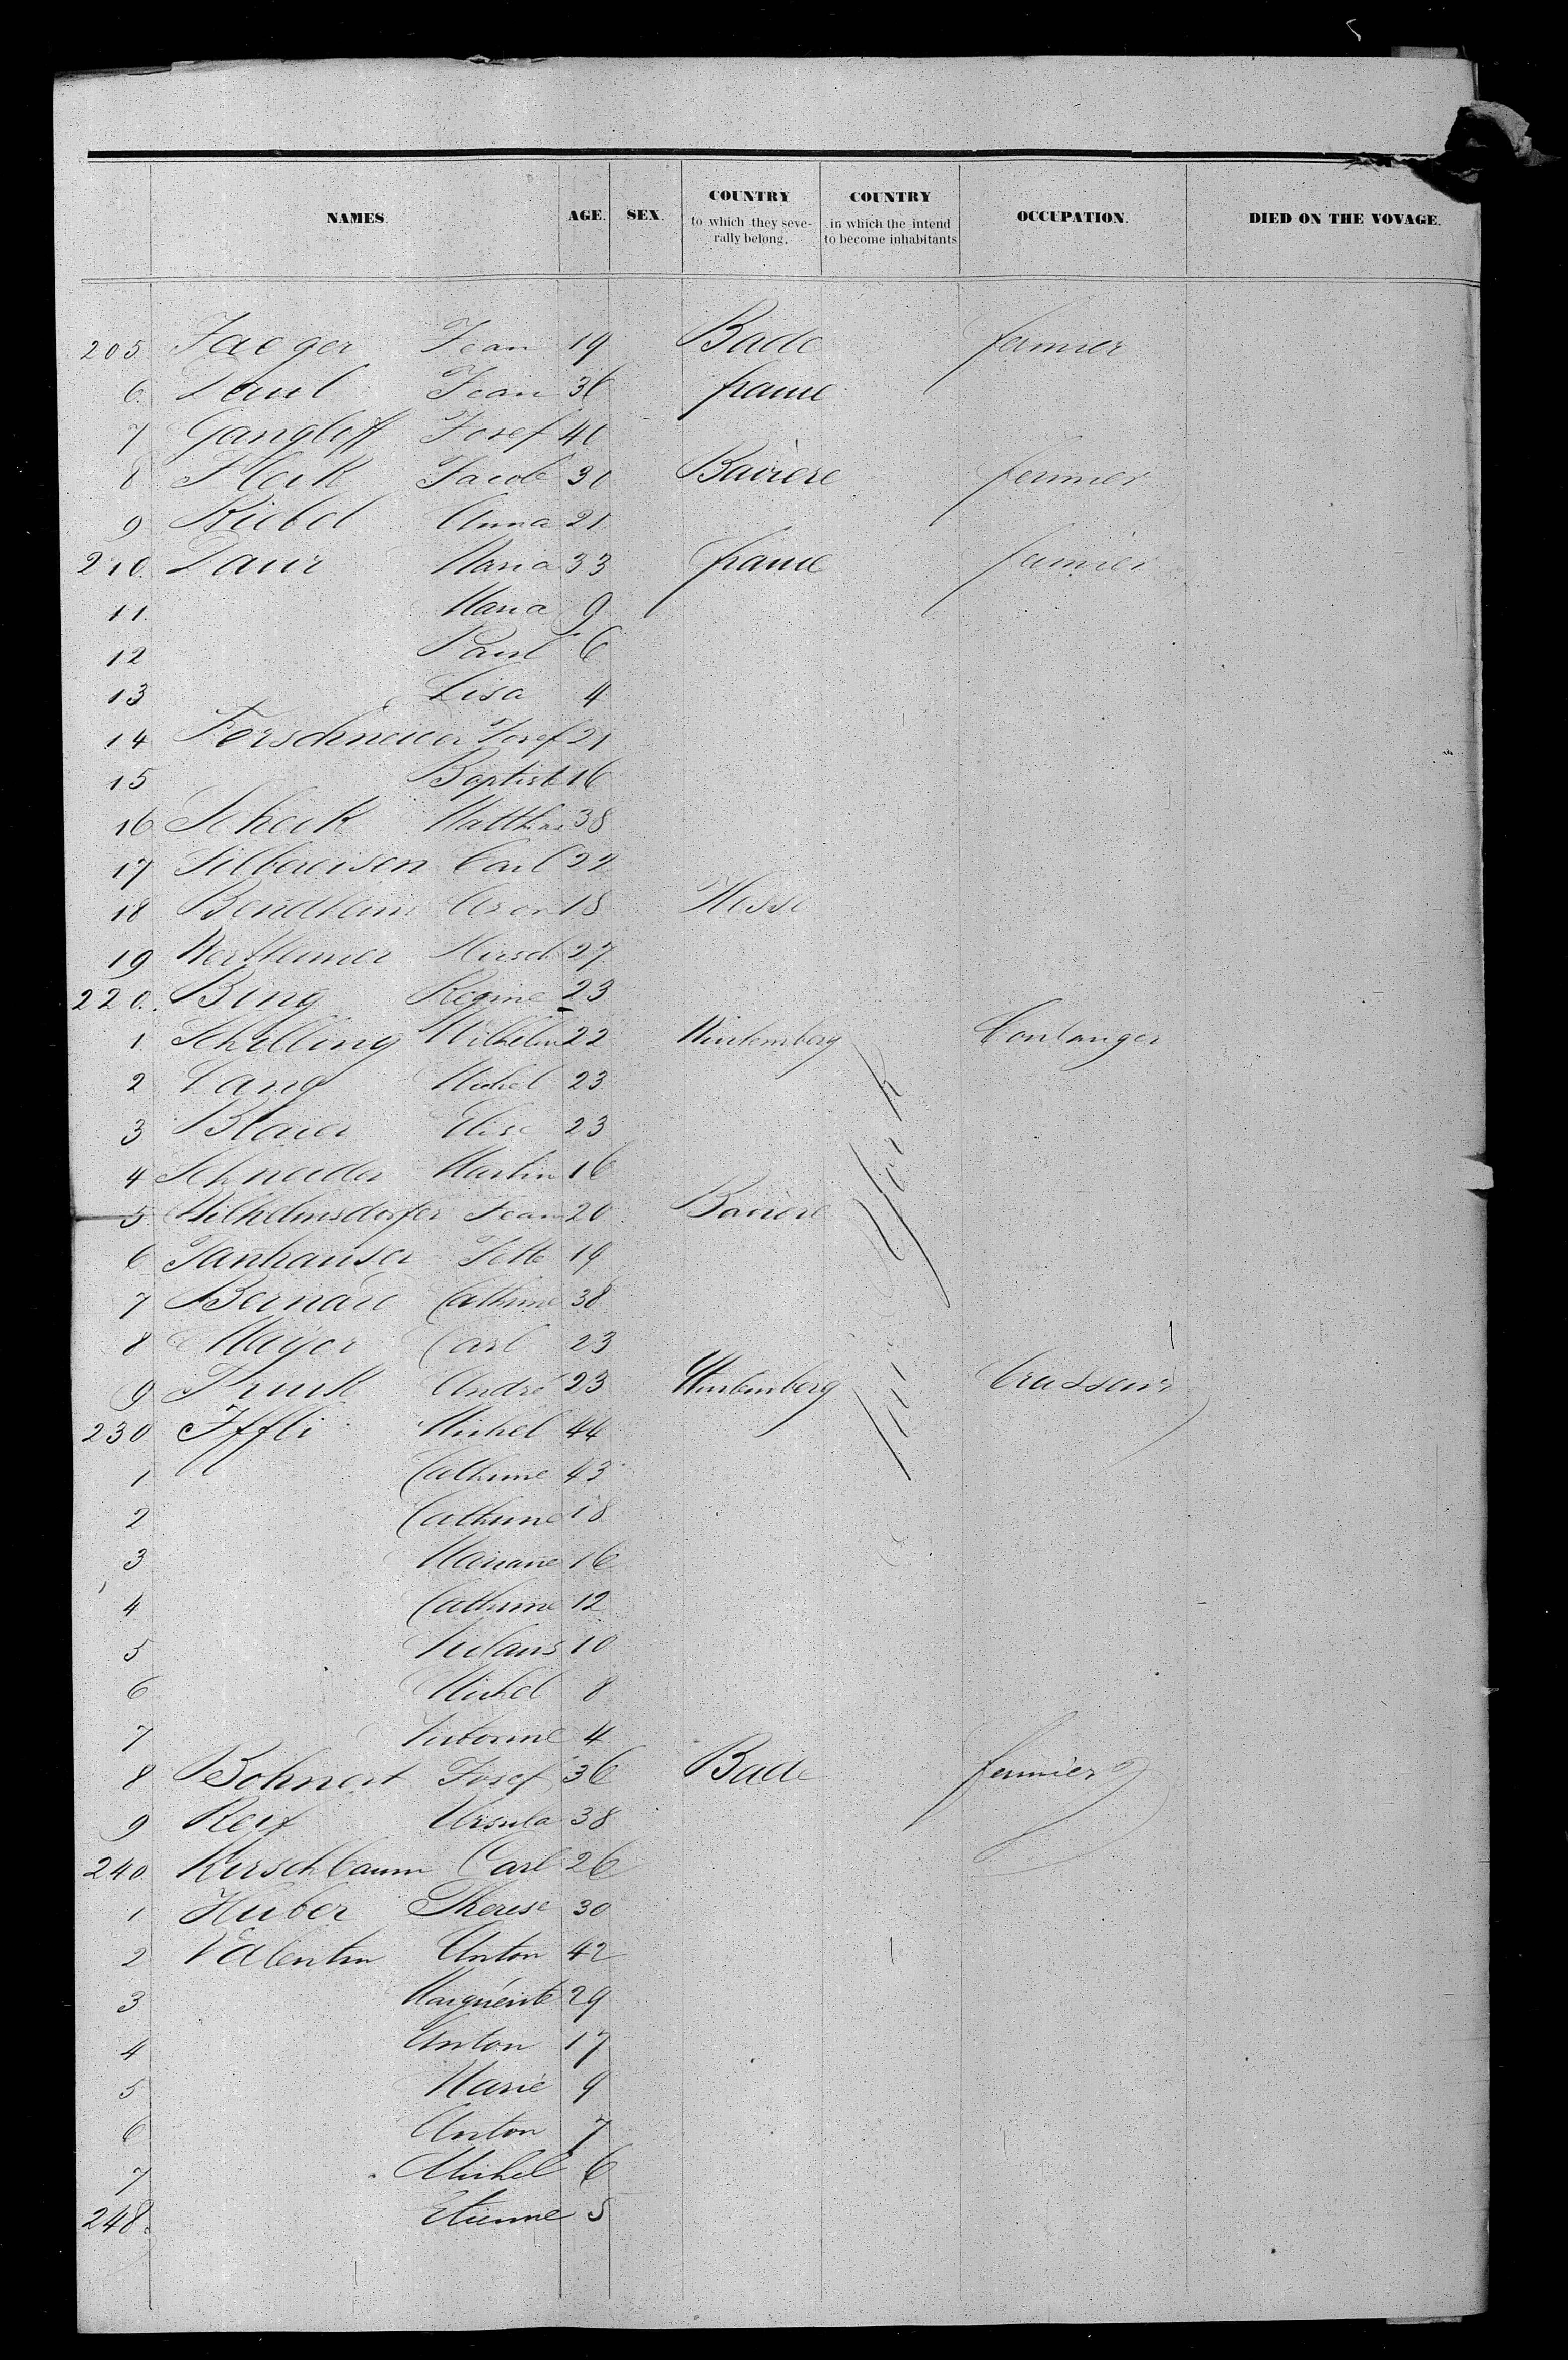 NAMES. AGE. SEX. COUNTRY to which they severally belong. COUNTRY in which the intend to become inhabitants OCCUPATION. DIED ON THE VOYAGE.
205 Jaeger Jean 19 Bade fermier
6. Jean 36 france
7 Gangloff Josef 40
8 Jacob 30 Bavière fermier
9 Anna 21
210. Maria 33 france fermier
11. Maria 9
12 Paul 6
13 Lisa 4
14 Ferschneider Josef 21
15 Baptiste 16
16 Scheck Matthias 38
17 Silbereisen Carl 22
18 Bendheim Aron 18 Hesse
19 Wertheimer Hirsch 27
220. Bing Regine 23
1. Schilling Wilhelm 22 Wurtemberg boulanger
2 Lang Michel 23
3 Blaier Elise 23
4 Schneider Martin 16
5 Wilhelmsdorfer Jean 20 Bavière
6 Tanhauser Jette 19
7 Bernard Catherine 38
8 Mayer Carl 23
9 André 23 Wurtemberg brasseur
230 Iffli Michel 44
1 Catherine 43
2 Catherine 18
3 Mariane 16
4 Catherine 12
5 Nicolaus 10
6 Michel 8
7 Victorine 4
8 Bohnert Josef 36 Bade fermier
9 Reif Ursula 38
240. Kirschbaum Carl 26
1 Huber Therese 30
2 Valentin Anton 42
3 Marguerite 29
4 Anton 17
5 Marie 9
6 Anton 7
7 Michel 6
248. Etienne 5
York